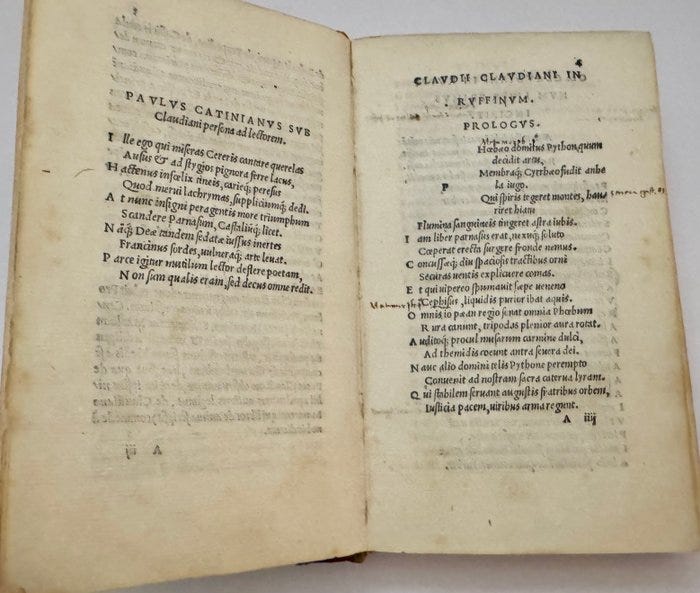 PAVLVS CATINIANVS SVB
Claudiani persona ad lectorem.
I lle ego qui miseras Cereris cantare querelas
Ausus & ad stygios pignora ferre lacus,
H actenus infœlix tineis, carieq; peresus
Quod merui lachrymas, suppliciumq; dedi.
A t nunc insigni peragentis more triumphum
Scandere Parnasum, Castaliūq; licet.
N āq; Deæ tandem sedatæ iussus inertes
Francinus sordes, vulneraq; arte leuat.
P arce igitur mutilum lector deflere poetam,
N on sum qualis eram, sed decus omne redit.
A iij
4
CLAVDII CLAVDIANI IN
RVFFINVM.
PROLOGVS.
P Hœbeo domitus Python quum
decidit arcu,
Membraq; Cyrrhæo fudit anhe
la iugo.
Qui spiris tegeret montes, hau
riret hiatu
Flumina sanguineis tingeret astra iubis.
I am liber parnasus erat, nexuq; soluto
Cœperat erecta surgere fronde nemus.
C oncussæq; diu spaciosis tractibus orni
Securas ventis explicuere comas.
E t qui vipereo spumauit sæpe veneno
Cephisus, liquidis purior ibat aquis.
O mnis io pæan regio sonat omnia Phœbum
R ura canunt, tripodas plenior aura rotat.
A uditoq; procul musarum carmine dulci,
Ad themidis coeunt antra seuera dei.
N unc alio domini telis Pythone perempto
Conuenit ad nostram sacra caterua lyram.
Q ui stabilem seruans augustis fratribus orbem,
Iusticia pacem, uiribus arma regunt.
A iiij